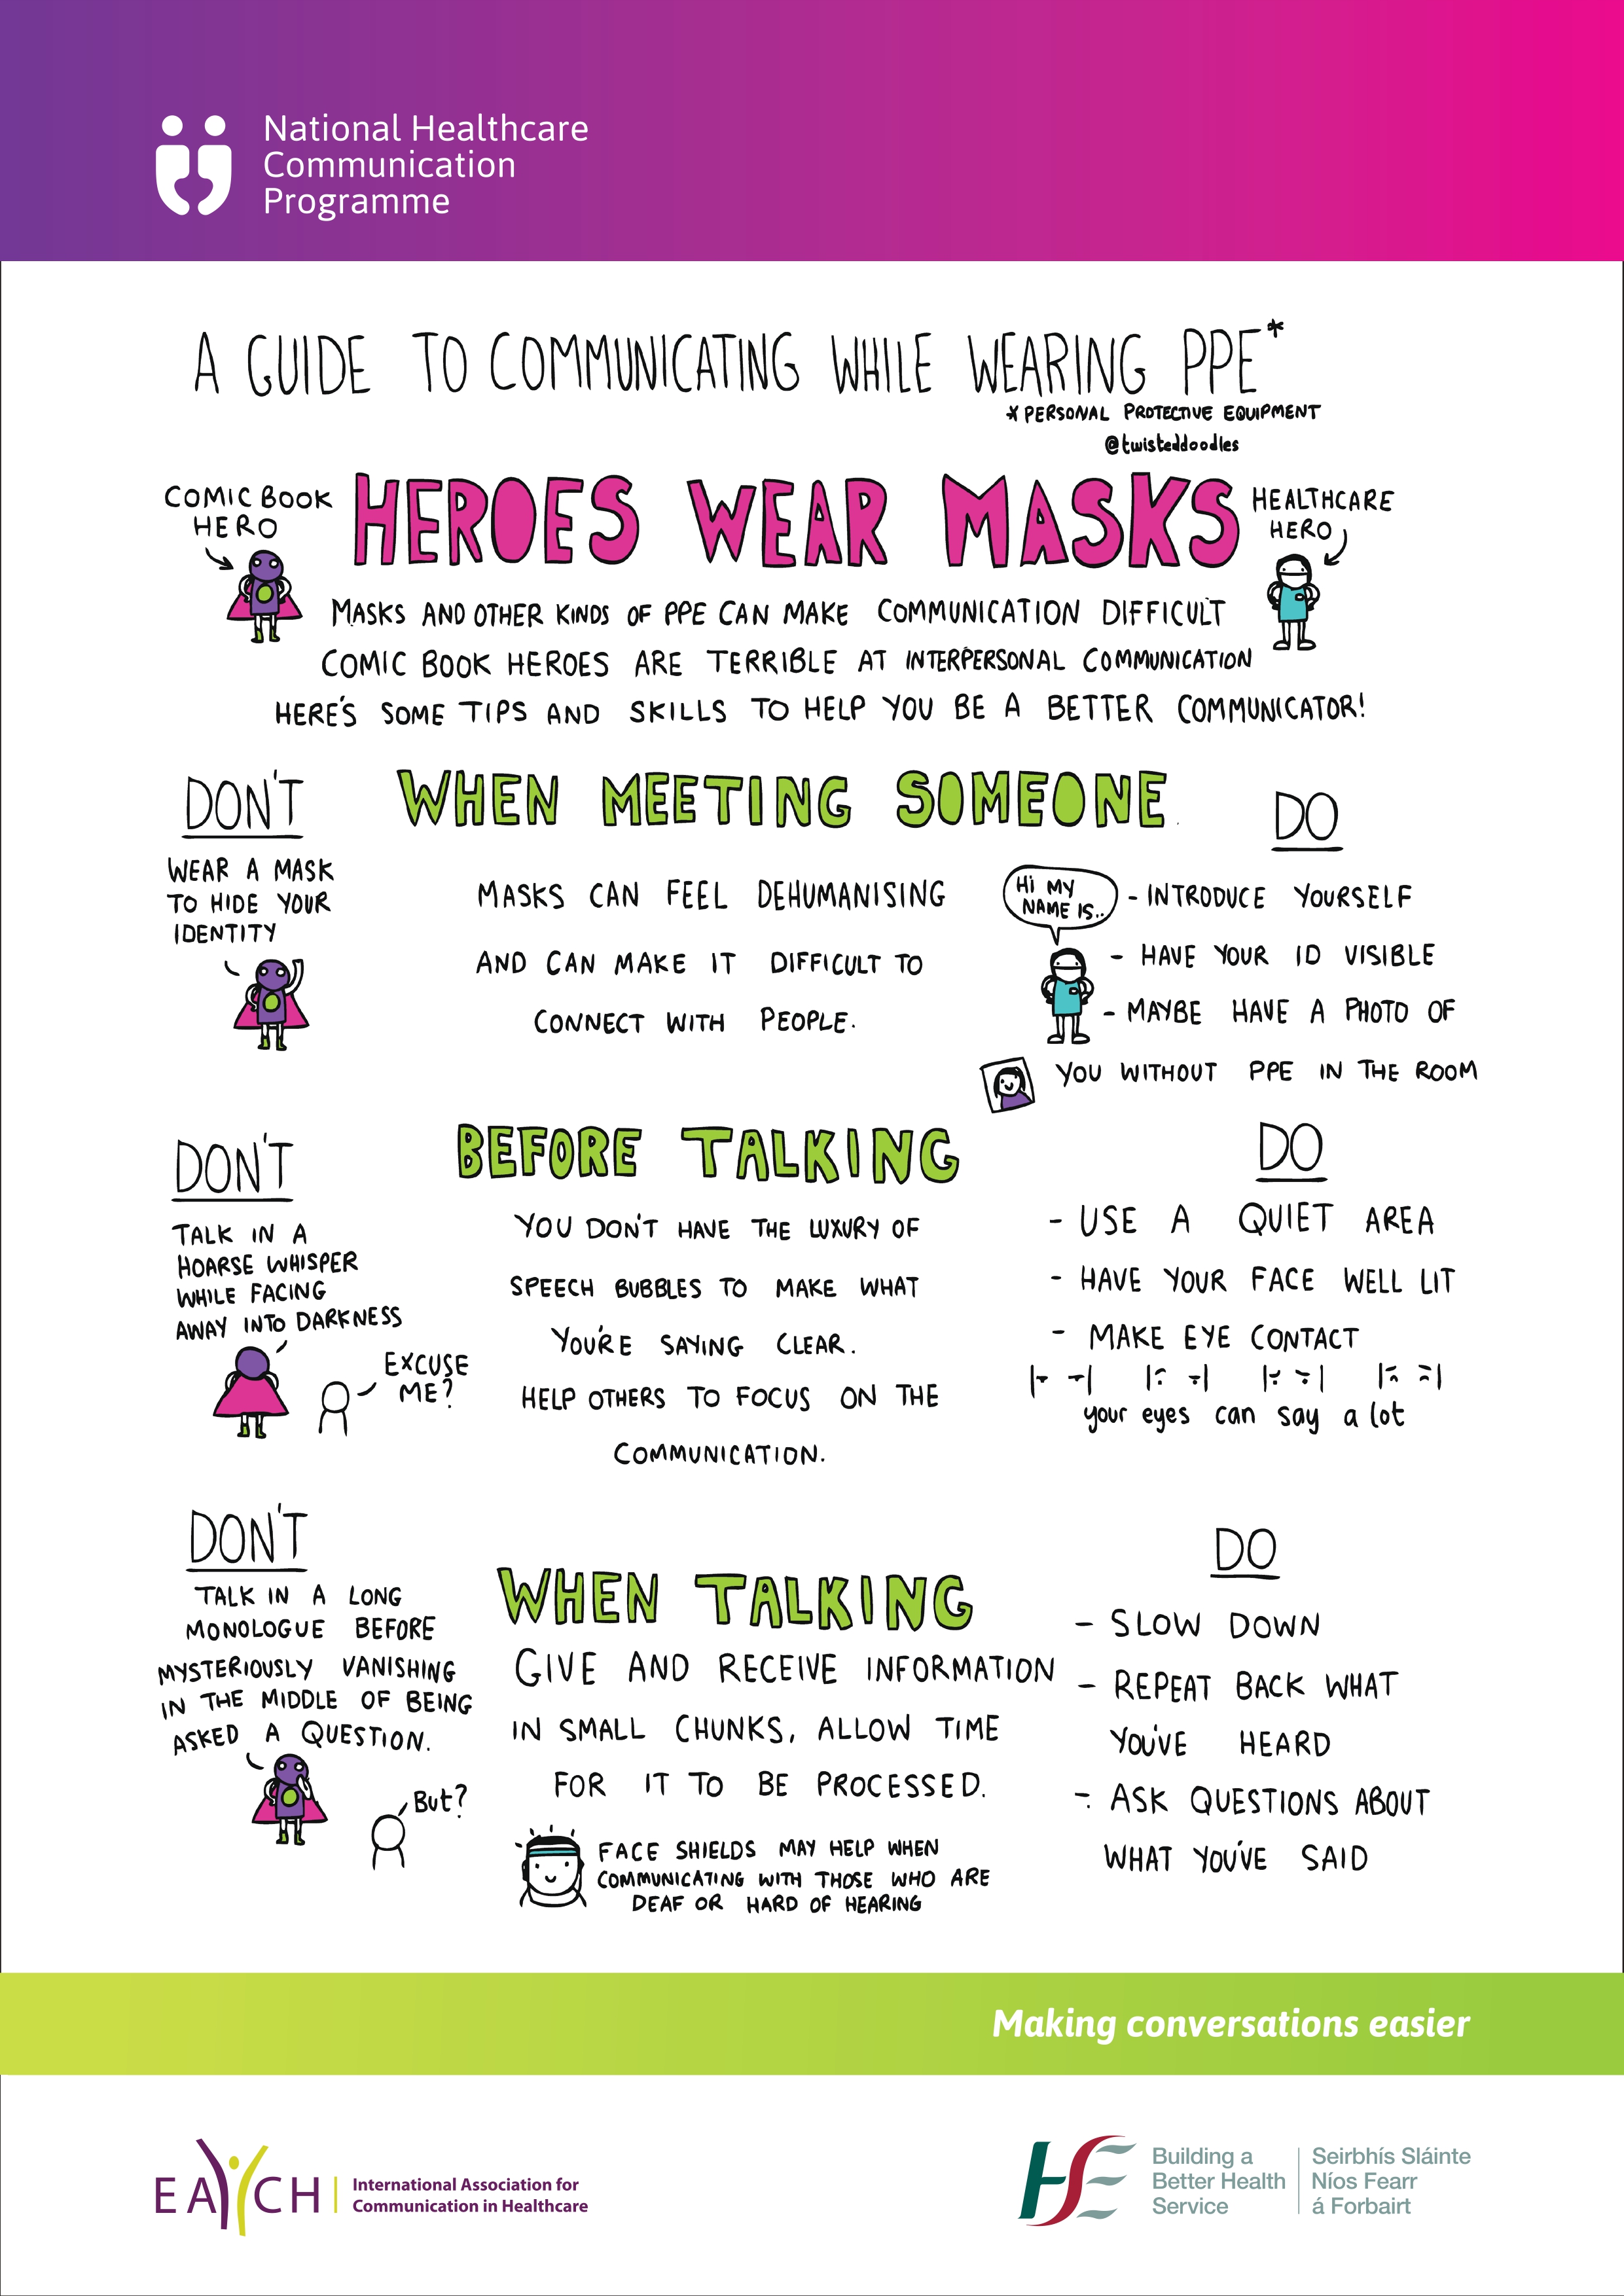 National Healthcare
Communication
Programme
A GUIDE TO COMMUNICATING WHILE WEARING PPE*
* PERSONAL PROTECTIVE EQUIPMENT
@twisteddoodles
COMIC BOOK
HERO
HEROES WEAR MASKS
HEALTHCARE
HERO
MASKS AND OTHER KINDS OF PPE CAN MAKE COMMUNICATION DIFFICULT
COMIC BOOK HEROES ARE TERRIBLE AT INTERPERSONAL COMMUNICATION
HERE'S SOME TIPS AND SKILLS TO HELP YOU BE A BETTER COMMUNICATOR!
DON'T
WEAR A MASK
TO HIDE YOUR
IDENTITY
WHEN MEETING SOMEONE
MASKS CAN FEEL DEHUMANISING
AND CAN MAKE IT DIFFICULT TO
CONNECT WITH PEOPLE.
DO
Hi MY
NAME IS..
- INTRODUCE YOURSELF
- HAVE YOUR ID VISIBLE
- MAYBE HAVE A PHOTO OF
YOU WITHOUT PPE IN THE ROOM
DON'T
TALK IN A
HOARSE WHISPER
WHILE FACING
AWAY INTO DARKNESS
EXCUSE
ME?
BEFORE TALKING
YOU DON'T HAVE THE LUXURY OF
SPEECH BUBBLES TO MAKE WHAT
YOU'RE SAYING CLEAR.
HELP OTHERS TO FOCUS ON THE
COMMUNICATION.
DO
- USE A QUIET AREA
- HAVE YOUR FACE WELL LIT
- MAKE EYE CONTACT
your eyes can say a lot
DON'T
TALK IN A LONG
MONOLOGUE BEFORE
MYSTERIOUSLY VANISHING
IN THE MIDDLE OF BEING
ASKED A QUESTION.
But?
WHEN TALKING
GIVE AND RECEIVE INFORMATION
IN SMALL CHUNKS, ALLOW TIME
FOR IT TO BE PROCESSED.
FACE SHIELDS MAY HELP WHEN
COMMUNICATING WITH THOSE WHO ARE
DEAF OR HARD OF HEARING
DO
- SLOW DOWN
- REPEAT BACK WHAT
YOU'VE HEARD
- ASK QUESTIONS ABOUT
WHAT YOU'VE SAID
Making conversations easier
EACH
International Association for
Communication in Healthcare
HSE
Building a
Better Health
Service
Seirbhís Sláinte
Níos Fearr
á Forbairt